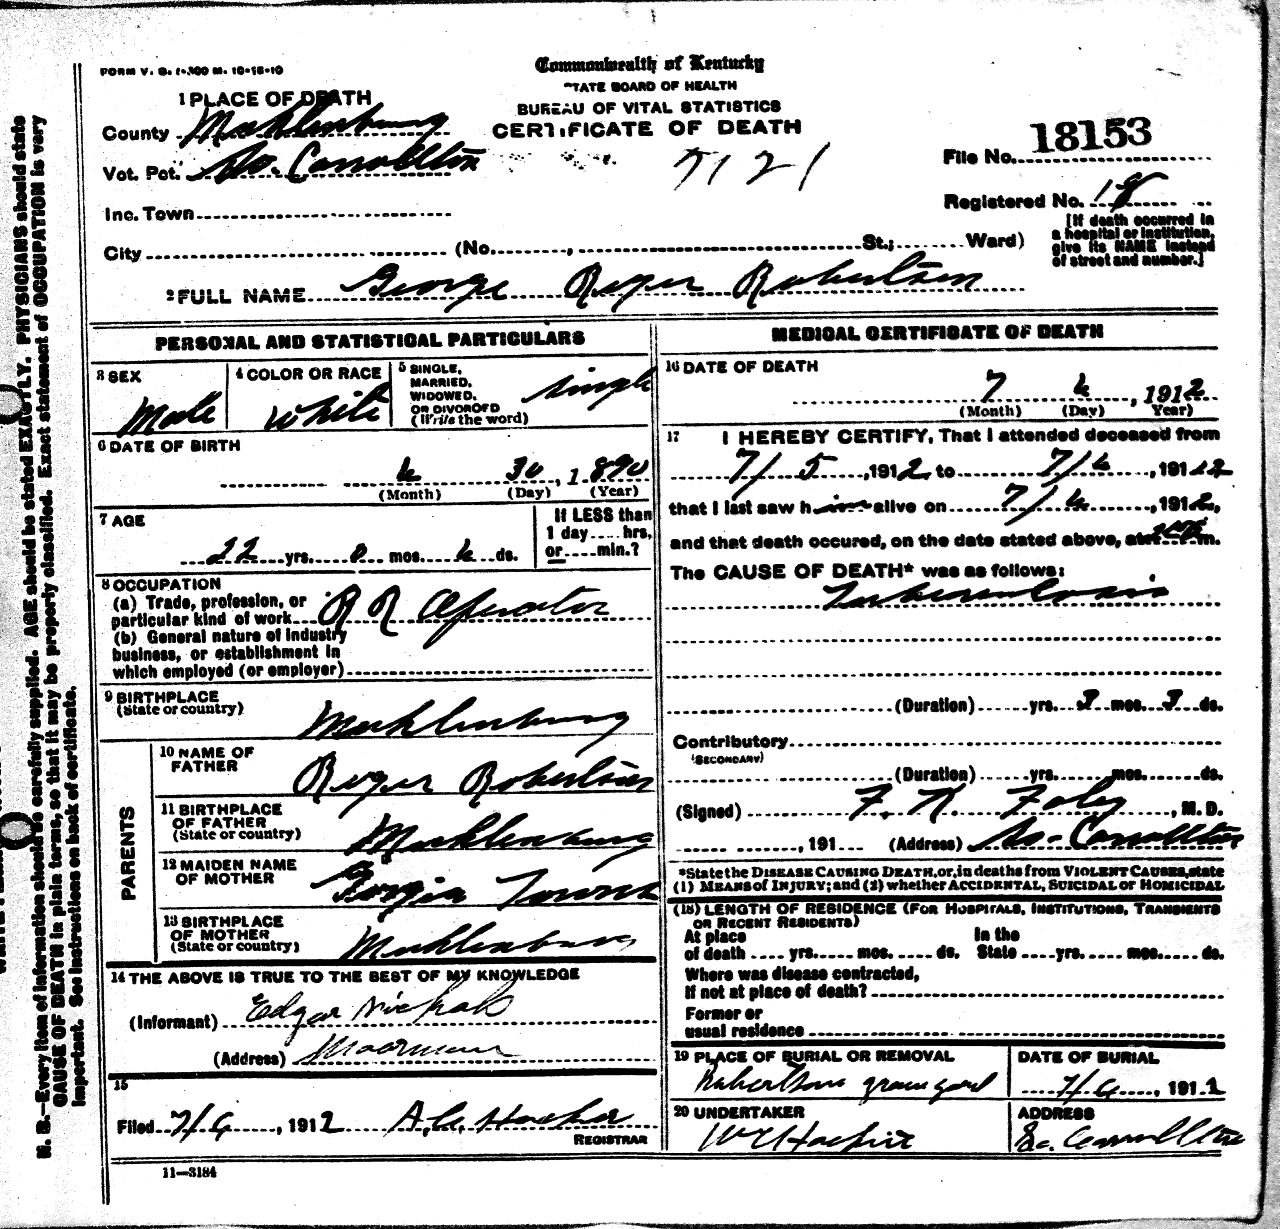 FORM V. S. 1-300 M. 10-18-10
Commonwealth of Kentucky
STATE BOARD OF HEALTH
BUREAU OF VITAL STATISTICS
CERTIFICATE OF DEATH
1 PLACE OF DEATH
County Mecklenburg
Vot. Pct. So. Carrollton
7121
File No. 18153
Registered No. 18
Inc. Town
City (No. , St.; Ward)
[If death occurred in
a hospital or institution,
give its NAME instead
of street and number.]
2 FULL NAME George Roger Robertson
PERSONAL AND STATISTICAL PARTICULARS
3 SEX
Male
4 COLOR OR RACE
White
5 SINGLE,
MARRIED,
WIDOWED,
OR DIVORCED
(Write the word)
Single
6 DATE OF BIRTH
6 30, 1890
(Month) (Day) (Year)
7 AGE
22 yrs. 0 mos. 6 ds.
If LESS than
1 day.... hrs,
or.....min.?
8 OCCUPATION
(a) Trade, profession, or
particular kind of work R R Operator
(b) General nature of industry
business, or establishment in
which employed (or employer)
9 BIRTHPLACE
(State or country)
Mecklenburg
PARENTS
10 NAME OF
FATHER
Roger Robertson
11 BIRTHPLACE
OF FATHER
(State or country)
Mecklenburg
12 MAIDEN NAME
OF MOTHER
Georgia
13 BIRTHPLACE
OF MOTHER
(State or country)
Mecklenburg
14 THE ABOVE IS TRUE TO THE BEST OF MY KNOWLEDGE
(Informant) Edgar
(Address) Moorman
15
Filed 7/6, 1912
REGISTRAR
11-3184
MEDICAL CERTIFICATE OF DEATH
16 DATE OF DEATH
7 6, 1912
(Month) (Day) Year)
17 I HEREBY CERTIFY, That I attended deceased from
7/5, 1912 to 7/6, 1912
that I last saw him alive on 7/6, 1912,
and that death occured, on the date stated above, at m.
The CAUSE OF DEATH* was as follows:
Tuberculosis
(Duration) yrs. 3 mos. 3 ds.
Contributory
(SECONDARY)
(Duration) yrs. mos. ds.
(Signed) F. K. Foley, M.D.
, 191 (Address) So. Carrollton
*State the DISEASE CAUSING DEATH, or, in deaths from VIOLENT CAUSES, state
(1) MEANS of INJURY; and (2) whether ACCIDENTAL, SUICIDAL or HOMICIDAL
(18) LENGTH OF RESIDENCE (FOR HOSPITALS, INSTITUTIONS, TRANSIENTS
OR RECENT RESIDENTS)
At place In the
of death .... yrs..... mos..... ds. State ....yrs..... mos..... ds.
Where was disease contracted,
If not at place of death?
Former or
usual residence
19 PLACE OF BURIAL OR REMOVAL
Robertson graveyard
DATE OF BURIAL
7/6, 1912
20 UNDERTAKER
ADDRESS
So. Carrollton
N. B.—Every item of information should be carefully supplied. AGE should be stated EXACTLY. PHYSICIANS should state
CAUSE OF DEATH in plain terms, so that it may be properly classified. Exact statement of OCCUPATION is very
important. See instructions on back of certificate.